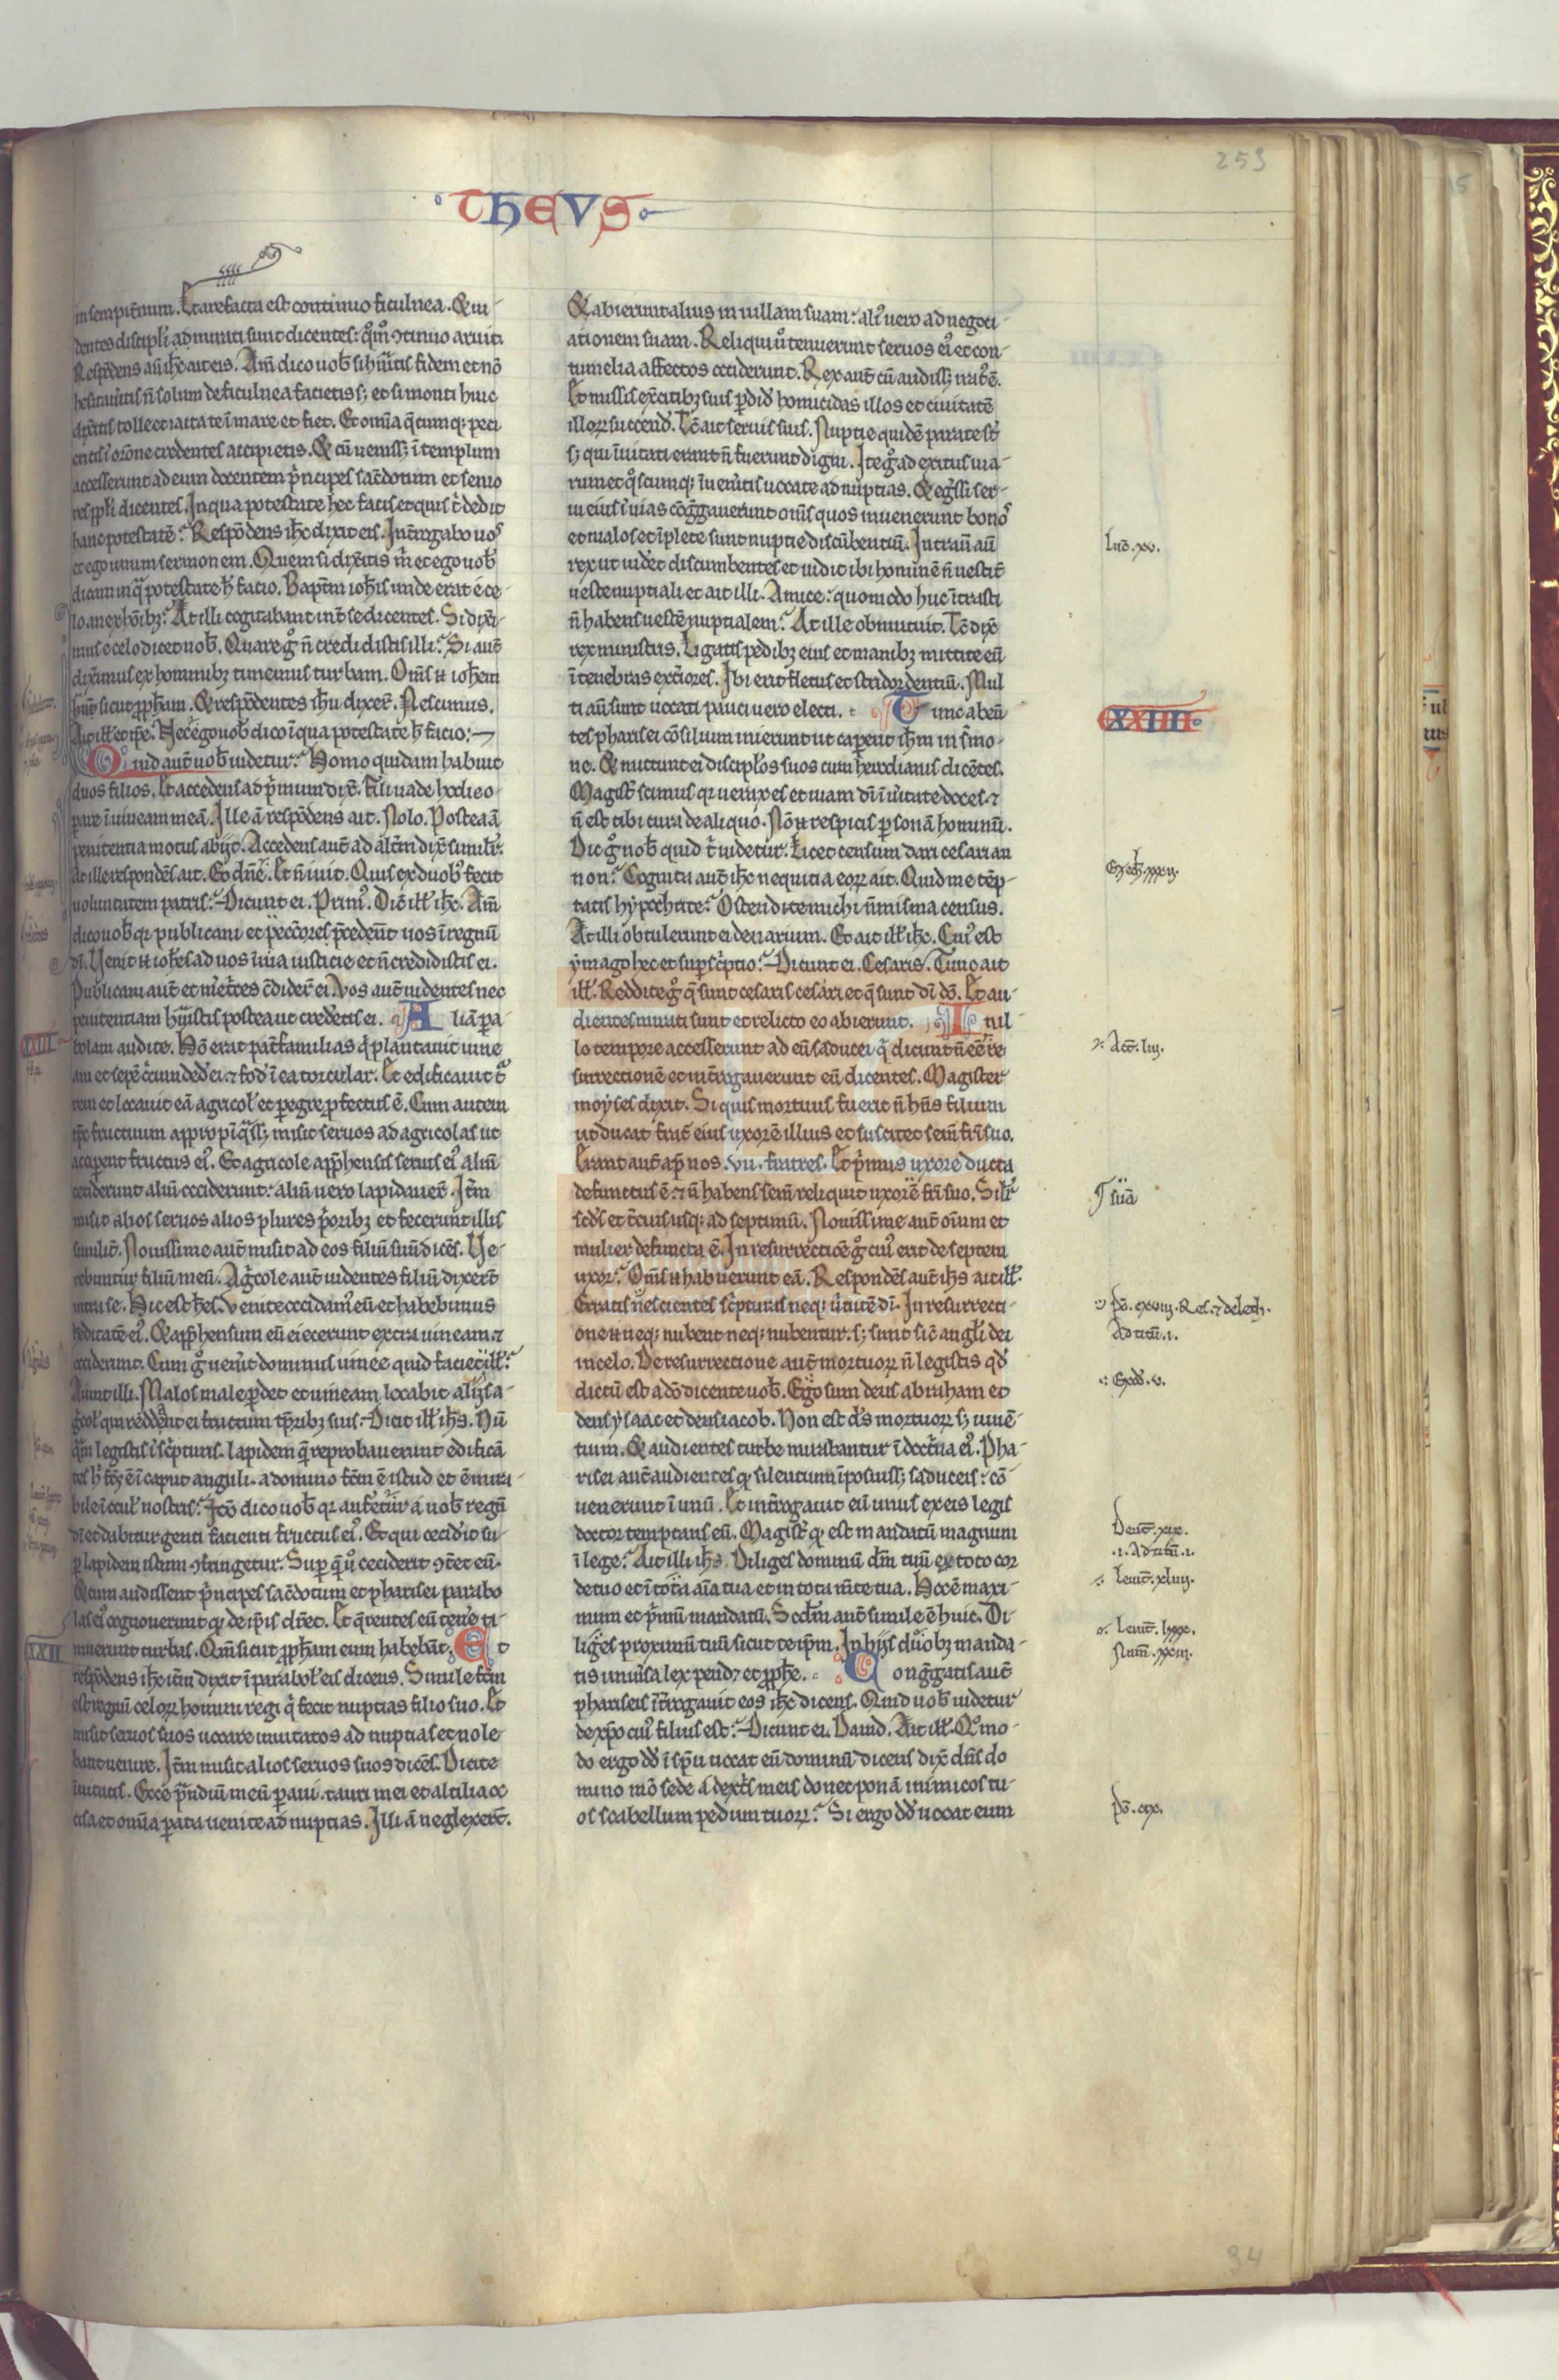 THEVS
253
in sempit̄num. Et arefacta est continuo ficulnea. Et ui-
dentes discipl̄i admirati sunt dicentes: qm̄o ꝯtinuo aruit.
Respōdens aū ih̄c ait eis. Am̄ dico uob̄ si hūitis fidem et nō
hesitaūitis n̄ solum de ficulnea facietis s; et si monti huic
dix̄itis tolle et iacta te ī mare et fiet. Et om̄ia q̄cumq; peci
eritis ī or̄one credentes accipietis. Et cū ueniss; ī templum
accesserunt ad eum docentem p̄ncipes sac̄dotum et senio
res ppl̄i dicentes. In qua potestate hec facis et quis t̄ dedit
hanc potestatē? Respōdens ih̄c dixit eis. Int̄rogabo uos
et ego unum sermonem. Quem si dix̄itis m̄ et ego uob̄
dicam in q̄ potestate h̄ facio. Bapt̄m ioh̄is unde erat e ce-
lo an ex hōib;? At illi cogitabant int̄ se dicentes. Si dixi-
mus e celo dicet nob̄. Quare ḡ n̄ credidistis illi? Si aut̄
dix̄imus ex hominib; timemus turbam. Om̄s n̄ ioh̄em
hn̄t sicut pph̄am. Et respōdentes ih̄u dixer̄. Nescimus.
Ait ill̄ et ip̄e. Nec ego uob̄ dico ī qua potestate h̄ facio:
Quid aut̄ uob̄ uidetur? Homo quidam habuit
duos filios. Et accedens ad p̄mum dix̄. Fili uade hodie o-
pare ī uineam meā. Ille ā respōdens ait. Nolo. Postea ā
penitentia motus abijt. Accedens aut̄ ad alt̄m dix̄ similir̄.
At ille respondēs ait. Eo dn̄e. Et n̄ iuit. Quis ex duob̄ fecit
uoluntatem patris? Dicunt ei. Prim̄. Dic̄ ill̄ ih̄c. Am̄
dico uob̄ qr publicani et peccōres p̄cedent uos ī regnū
dī. Uenit n̄ ioh̄es ad uos ī uia iusticie et n̄ credidistis ei.
Publicani aut̄ et m̄et̄ces c̄dider̄ ei. Vos aut̄ uidentes nec
penitentiam hūistis postea ut cred̄etis ei. Aliā pa-
XXIII
bolam audite. Hō erat pat̄familias q̄ plantauit uine
am et sepē c̄cumded̄ ei. ⁊ fod̄ ī ea torcular. Et edificauit t̄
rem et locauit eā agricol̄ et peregre pfectus ē. Cum autem
tp̄c fructuum appropīq̄ss; misit seruos ad agricolas ut
acciperent fructus ei. Et agricole app̄hensis seruis ei. aliū
ceciderunt aliū occiderunt: aliū uero lapidauer̄. It̄m
misit alios seruos alios plures p̄orib; et fecerunt illis
similit̄. Nouissime aut̄ misit ad eos filiū suū dicēs. Ue-
rebuntur filiū meū. Agricole aut̄ uidentes filiū dixer̄t
intra se. Hic est h̄es. venite occidam̄ eū et habebimus
h̄editatē ei. Et app̄hensum eū eiecerunt extra uineam. ⁊
occiderunt. Cum ḡ uen̄it dominus uinee quid faciet ill̄?
Aiunt illi. Malos male pdet et uineam locabit alijs a-
gricol̄ qui reddant ei fructum tp̄rib; suis. Dicit ill̄ ih̄s. Nū
q̄m legistis ī sc̄pturis. lapidem q̄ reprobauerunt edificā
tes h̄ fc̄s ē ī caput anguli. a domino fc̄m ē istud et ē mira-
bile ī ocul̄ nostris? Icō dico uob̄ qr auferetur a uob̄ regnū
dī et dabitur genti facienti fructus ei. Et qui cecid̄it su-
p lapidem istum ꝯfringetur. Sup q̄ ū ceciderit ꝯt̄et eū.
Et cum audissent p̄ncipes sac̄dotum et pharisei parabo
las ei cognouerunt qd de ip̄is dic̄et. Et q̄rentes eū tene ti-
XXII
muerunt turbas. Qm̄ sicut pph̄am eum habebāt. Et
respōdens ih̄c it̄m dixit ī parabol̄ eis dicens. Simile fc̄m
est regnū celoꝝ homini regi q̄ fecit nuptias filio suo. Et
misit seruos suos uocare inuitatos ad nuptias et nole
bant uenire. It̄m misit alios seruos suos dicēs. Dicite
īuitatis. Ecce p̄ndiū meū paui. tauri mei et altilia oc
cisa et om̄ia parata uenite ad nuptias. Illi ā neglexer̄t.
Et abierunt alius in uillam suam: ali uero ad negoci-
ationem suam. Reliqui ū tenuerunt seruos ei et con-
tumelia affectos occiderunt. Rex aut̄ cū audiss; irat̄ ē.
Et missis ex̄citib; suis pdid̄ homicidas illos et ciuitatē
illoꝝ succend̄. Tc̄ ait seruis suis. Nuptie quidē parate st̄
s; qui īuitati erant n̄ fuerunt digni. Ite ḡ ad exitus uia-
rum et q̄scumq; īuen̄itis uocate ad nuptias. Et eḡssi ser-
ui eius ī uias cōḡgauerunt om̄s quos inuenerunt bonos
et malos et īplete sunt nuptie discūbentiū. Intrauit aū
rex ut uid̄et discumbentes et uidit ibi hominē n̄ uestit̄
ueste nuptiali et ait illi. Amice: quomodo huc ītrasti
n̄ habens uestē nuptialem? At ille obmutuit. Tc̄ dix̄
rex ministris. Ligatis pedib; eius et manib; mittite eū
ī tenebras ext̄iores. Ibi erit fletus et stridor dentiū. Mul
ti aū sunt uocati pauci uero electi. Tunc abeū
XXIIII
tes pharisei cōsilium inierunt ut caperent ih̄m in s̄mo-
ne. Et mittunt ei discipl̄os suos cum herodianis dicētes.
Magist̄ scimus qr uerax es et uiam dī ī uītate doces. ⁊
n̄ est tibi cura de aliquo. Nō n̄ respicis psonā hominū.
Dic ḡ nob̄ quid t̄ uidetur. Licet censum dari cesari an
non? Cognita aut̄ ih̄c nequitia eoꝝ ait. Quid me tēp-
tatis hypochrite? Ostendite michi n̄misma census.
At illi obtulerunt ei denarium. Et ait ill̄ ih̄c. Cui est
ymago hec et sup̄sc̄ptio? Dicunt ei. Cesaris. Tunc ait
ill̄. Reddite ḡ q̄ sunt cesaris cesari et q̄ sunt dī dō. Et au-
dientes mirati sunt et relicto eo abierunt. In il-
lo tempore accesserunt ad eū saducei q̄ dicunt n̄ eē re
surrectionē et int̄rogauerunt eū dicentes. Magister
moyses dixit. Si quis mortuus fuerit n̄ hn̄s filium
ut ducat frat̄ eius uxorē illius et suscitet sem̄ fr̄i suo.
Erant aut̄ ap̄ nos .vii. fratres. Et p̄mus uxore ducta
defunctus ē. ⁊ n̄ habens sem̄ reliquit uxorē fr̄i suo. Silr̄
scd̄s et t̄cius usq; ad septimū. Nouissime aut̄ oīum et
mulier defuncta ē. In resurrectiōe ḡ cui erit de septem
uxor? Om̄s n̄ habuerunt eā. Respondēs aut̄ ih̄s ait ill̄.
Erratis nescientes sc̄pturas neq; ūtutē dī. In resurrecti-
one n̄ neq; nubent neq; nubentur. s; sunt sic̄ angl̄i dei
in celo. De resurrectione aut̄ mortuoꝝ n̄ legistis qd̄
dictū est a dō dicente uob̄. Ego sum deus abraham et
deus ysaac et deus iacob. Non est d̄s mortuoꝝ s; uiuē-
tium. Et audientes turbe mirabantur ī doct̄na ei. Pha-
risei aut̄ audientes qd silentium īposuiss; saduceis: cō-
uenerunt ī unū. Et int̄rogauit eū unus ex eis legis
doctor temptans eū. Magist̄ qd est mandatū magnum
ī lege? Ait illi ih̄s. Diliges dominū dm̄ tuū ex toto cor
de tuo et ī tota aīa tua et in tota m̄te tua. Hoc ē maxi-
mum et p̄mū mandatū. Scdm̄ aut̄ simile ē huic. Di-
liges proximū tuū sicut te ip̄m. In hijs duob; manda-
tis uniūsa lex pend; et pph̄e. Congḡgatis aut̄
phariseis īt̄rogauit eos ih̄c dicens. Quid uob̄ uidetur
de xp̄o cui filius est? Dicunt ei. Dauid. Ait ill̄. Qūo mo-
do ergo dd̄ ī sp̄u uocat eū dominū dicens dix̄ dn̄s do
mino mō sede a dext̄s meis donec ponā inimicos tu-
os scabellum pedum tuoꝝ? Si ergo dd̄ uocat eum
Act̄. liij.
suā
Ad titū .i.
Exod̄. v.
Deut̄. xix.
.i. Ad titū .i.
Leuit̄. xliij.
Leuit̄. lxxx.
Num̄. xxiij.
ps̄. cix.
34